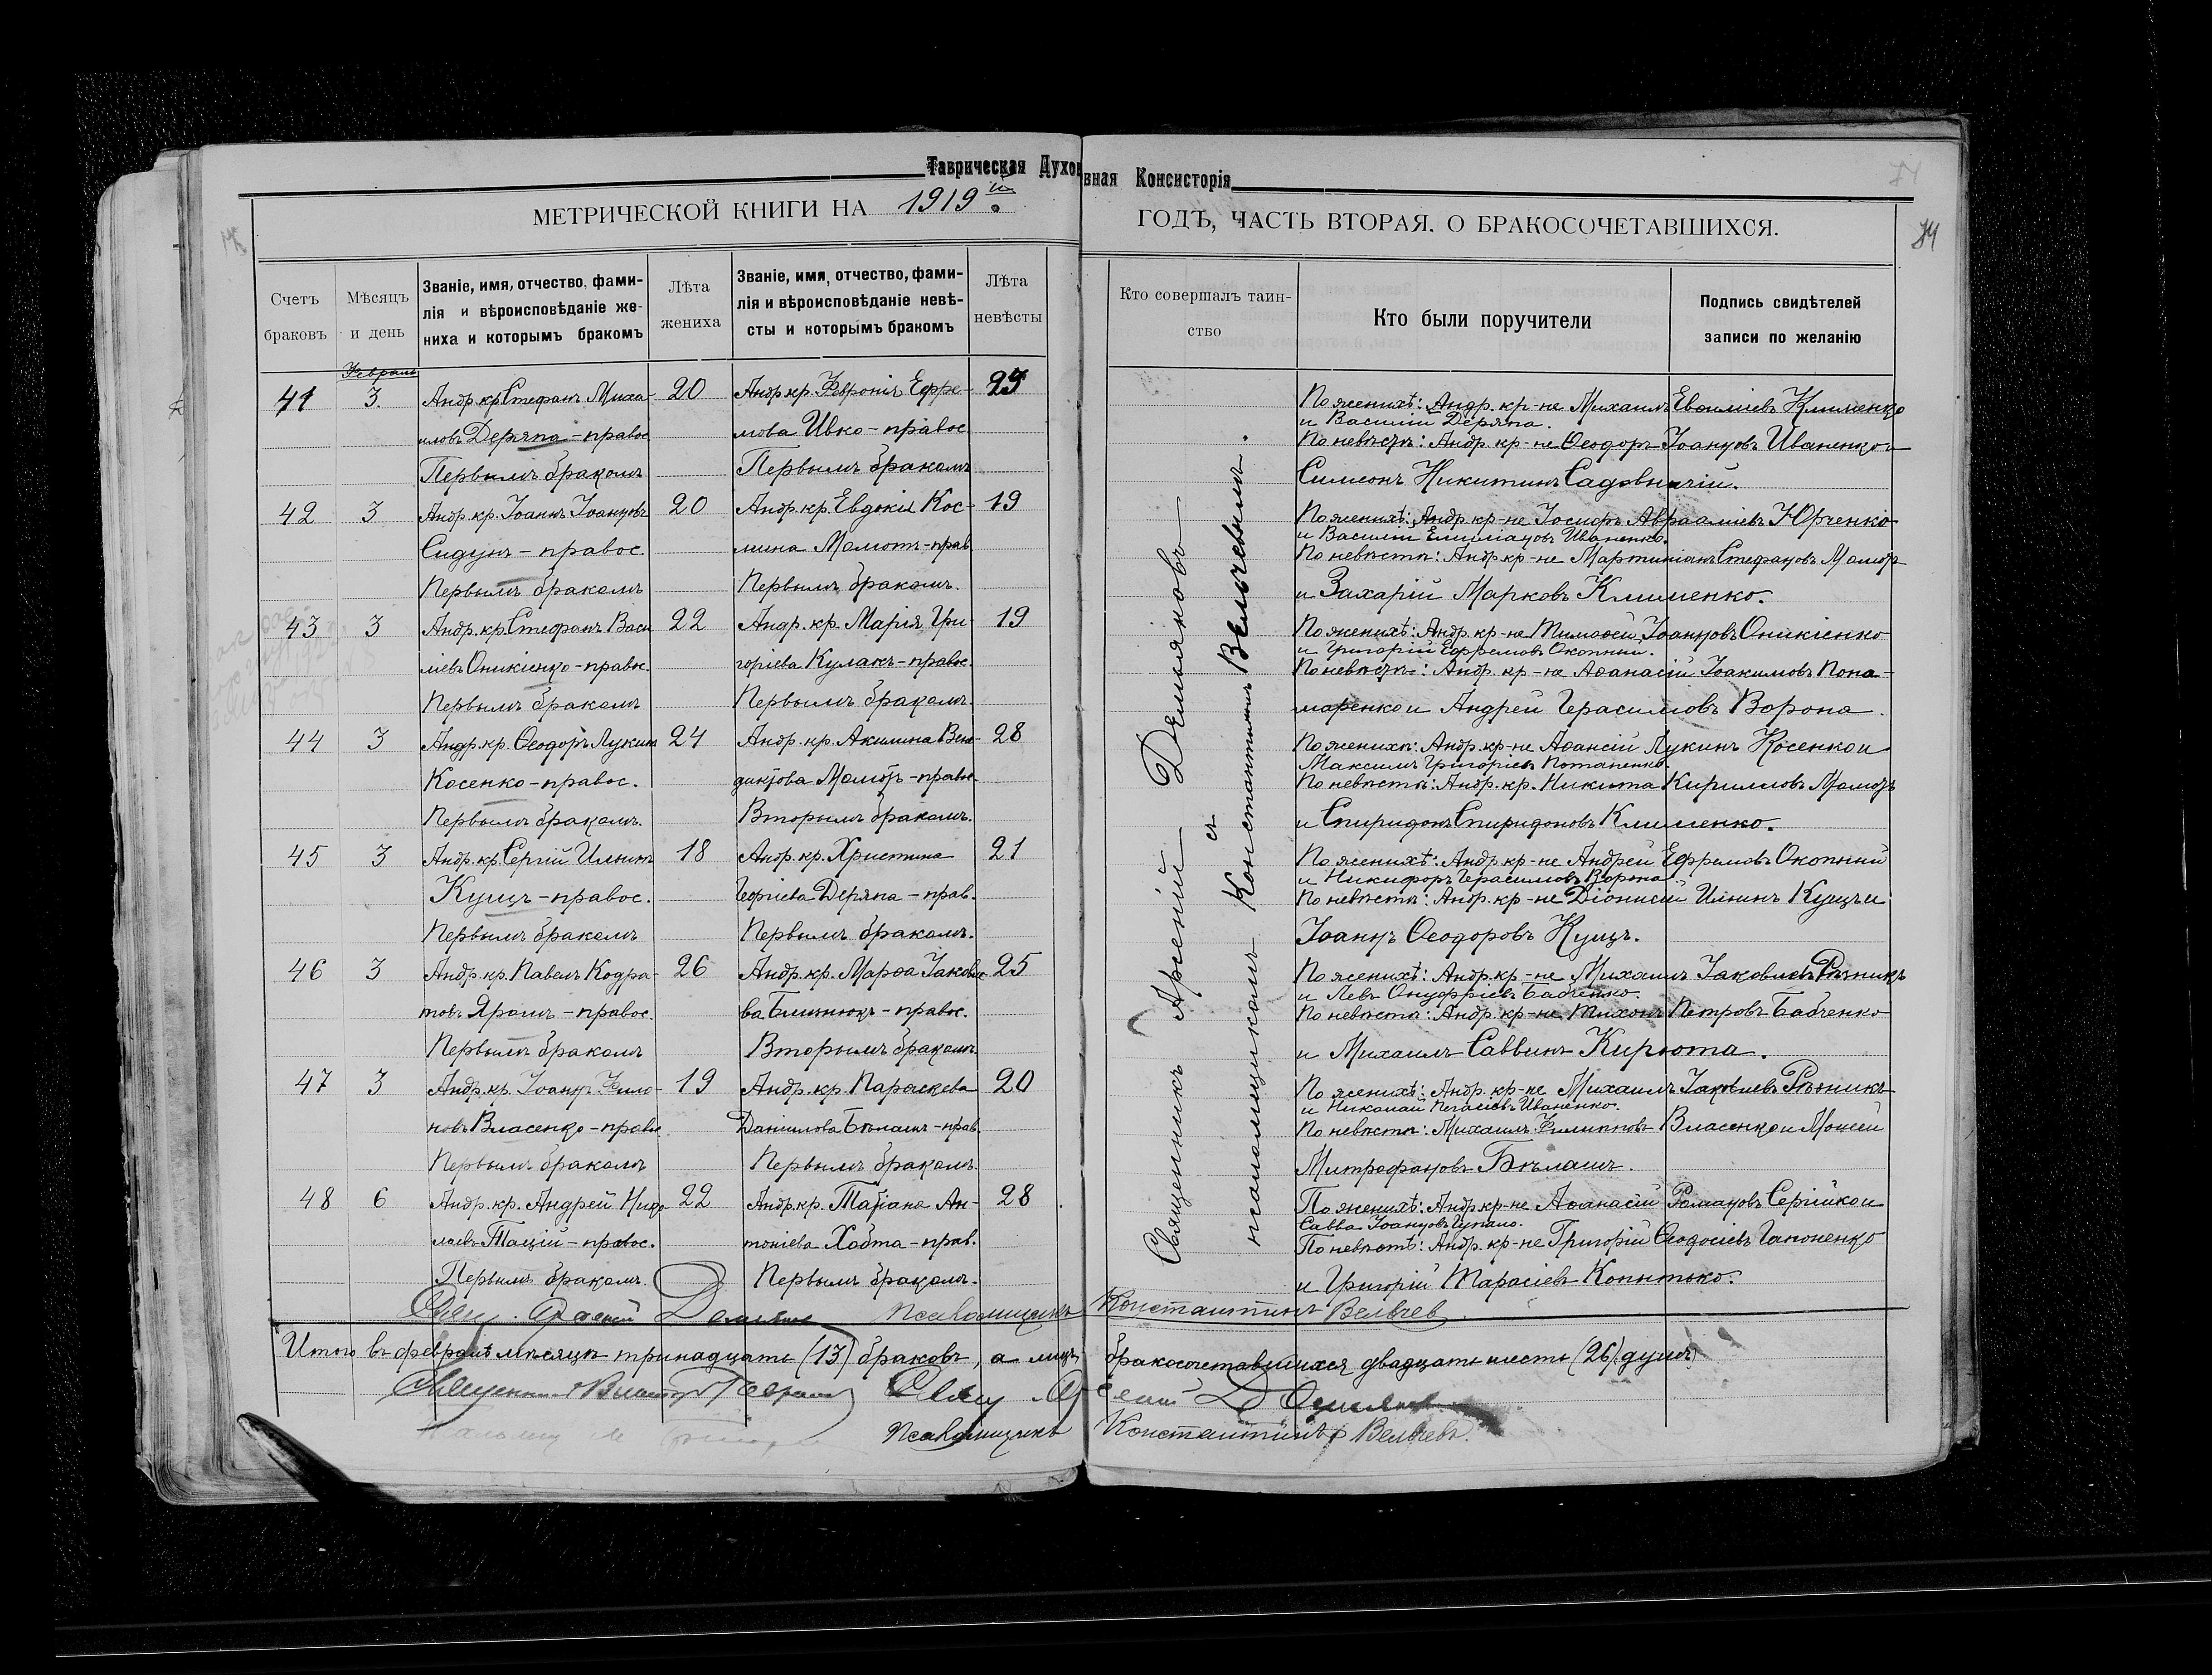 Таврическая Духовная Консисторія
МЕТРИЧЕСКОЙ КНИГИ НА 1919й ГОДЪ, ЧАСТЬ ВТОРАЯ. О БРАКОСОЧЕТАВШИХСЯ.
74
Счетъ браковъ
Мѣсяцъ и день
Званіе, имя, отчество, фами-
лія и вѣроисповѣданіе же-
ниха и которымъ бракомъ
Лѣта жениха
Званіе, имя, отчество, фами-
лія и вѣроисповѣданіе невѣ-
сты и которымъ бракомъ
Лѣта невѣсты
Кто совершалъ таин-
ство
Кто были поручители
Подпись свидѣтелей
записи по желанію
Февраль
41 3. Андр. кр. Стефанъ Миха- 20 Андр. кр. Февронія Ефре-
иловъ Деряпа - правос. мова Ивко - правос.
Первымъ бракомъ Первымъ бракомъ
По женихѣ: Андр. кр-не Михаилъ Клименко
и Василій Деряпа.
По невѣстѣ: Андр. кр-не Ѳеодоръ Іоанновъ Иваненко и
Симеонъ Никитинъ Садовничій.
42 3 Андр. кр. Іоаннъ Іоанновъ 20 Андр. кр. Евдокія Кос- 19
Сидунъ - правос. мина Момотъ - прав.
Первымъ бракомъ Первымъ бракомъ.
По женихѣ: Андр. кр-не Іосифъ Авраміевъ Юрченко
и Василій Емиліановъ Иваненко.
По невѣстѣ: Андр. кр-не Мартиніанъ Стефановъ Момотъ
и Захарій Марковъ Клименко.
43 3 Андр. кр. Стефанъ Васи 22 Андр. кр. Марія Гри- 19
ліевъ Оникіенко - правос. горіева Кулакъ - правос.
Первымъ бракомъ Первымъ бракомъ.
По женихѣ: Андр. кр-не Тимоѳей Іоанновъ Оникіенко
и Григорій Ефремовъ Окопный.
По невѣстѣ: Андр. кр-не Аѳанасій Іоакимовъ Пона-
маренко и Андрей Герасимовъ Ворона.
44 3 Андр. кр. Ѳеодоръ Лукинъ 24 Андр. кр. Акилина Вене- 28
Косенко - правос. диктова Момотъ - правос.
Первымъ бракомъ. Вторымъ бракомъ.
По женихѣ: Андр. кр-не Аѳансій Лукинъ Косенко и
Максимъ Григоріевъ Потапенко.
По невѣстѣ: Андр. кр. Никита Кирилловъ Момотъ
и Спиридонъ Спиридоновъ Клименко.
45 3 Андр. кр. Сергій Ильинъ 18 Андр. кр. Христина 21
Кущъ - правос. Георгіева Деряпа - прав.
Первымъ бракомъ Первымъ бракомъ.
По женихѣ: Андр. кр-не Андрей Ефремовъ Окопный
и Никифоръ Герасимовъ Ворона
По невѣстѣ: Андр. кр-не Діонисій Ильинъ Кущъ и
Іоаннъ Ѳеодоровъ Кущъ.
46 3 Андр. кр. Павелъ Кодра- 26 Андр. кр. Марѳа Іаковле- 25
товъ Ярошъ - правос. ва Близнюкъ - правос.
Первымъ бракомъ Вторымъ бракомъ.
По женихѣ: Андр. кр-не Михаилъ Іаковлевъ Рѣзникъ
и Левъ Онуфріевъ Бабченко.
По невѣстѣ: Андр. кр-не Тихонъ Петровъ Бабченко
и Михаилъ Саввинъ Кирюта.
47 3 Андр. кр. Іоаннъ Фили- 19 Андр. кр. Параскева 20
новъ Власенко - правос. Даніилова Бѣлашъ - прав.
Первымъ бракомъ Первымъ бракомъ.
По женихѣ: Андр. кр-не Михаилъ Іаковлевъ Рѣзникъ
и Николай Иваненко.
По невѣстѣ: Михаилъ Филипповъ Власенко и Моисей
Митрофановъ Бѣлашъ.
48 6 Андр. кр. Андрей Нико 22 Андр. кр. Татіана Ан- 28
лаевъ Тацій - правос. тоніева Хобта - прав.
Первымъ бракомъ. Первымъ бракомъ.
По женихѣ: Андр. кр-не Аѳанасій Романовъ Сергійко и
Савва Іоанновъ Чупало.
По невѣстѣ: Андр. кр-не Григорій Ѳеодосіевъ Гапоненко
и Григорій Тарасіевъ Копытько.
Священникъ Арсеній Демьяновъ
съ
псаломщикомъ Константиномъ Вельчевымъ.
Свящ. Арсеній Демьяновъ Псаломщикъ Константинъ Вельчев
Итого въ февралѣ мѣсяцѣ тринадцать (13) браковъ, а лицъ бракосочетавшихся двадцать шесть (26) душъ.
Священникъ Свящ. Арсеній Демьяновъ
Псаломщикъ Константинъ Вельчевъ.